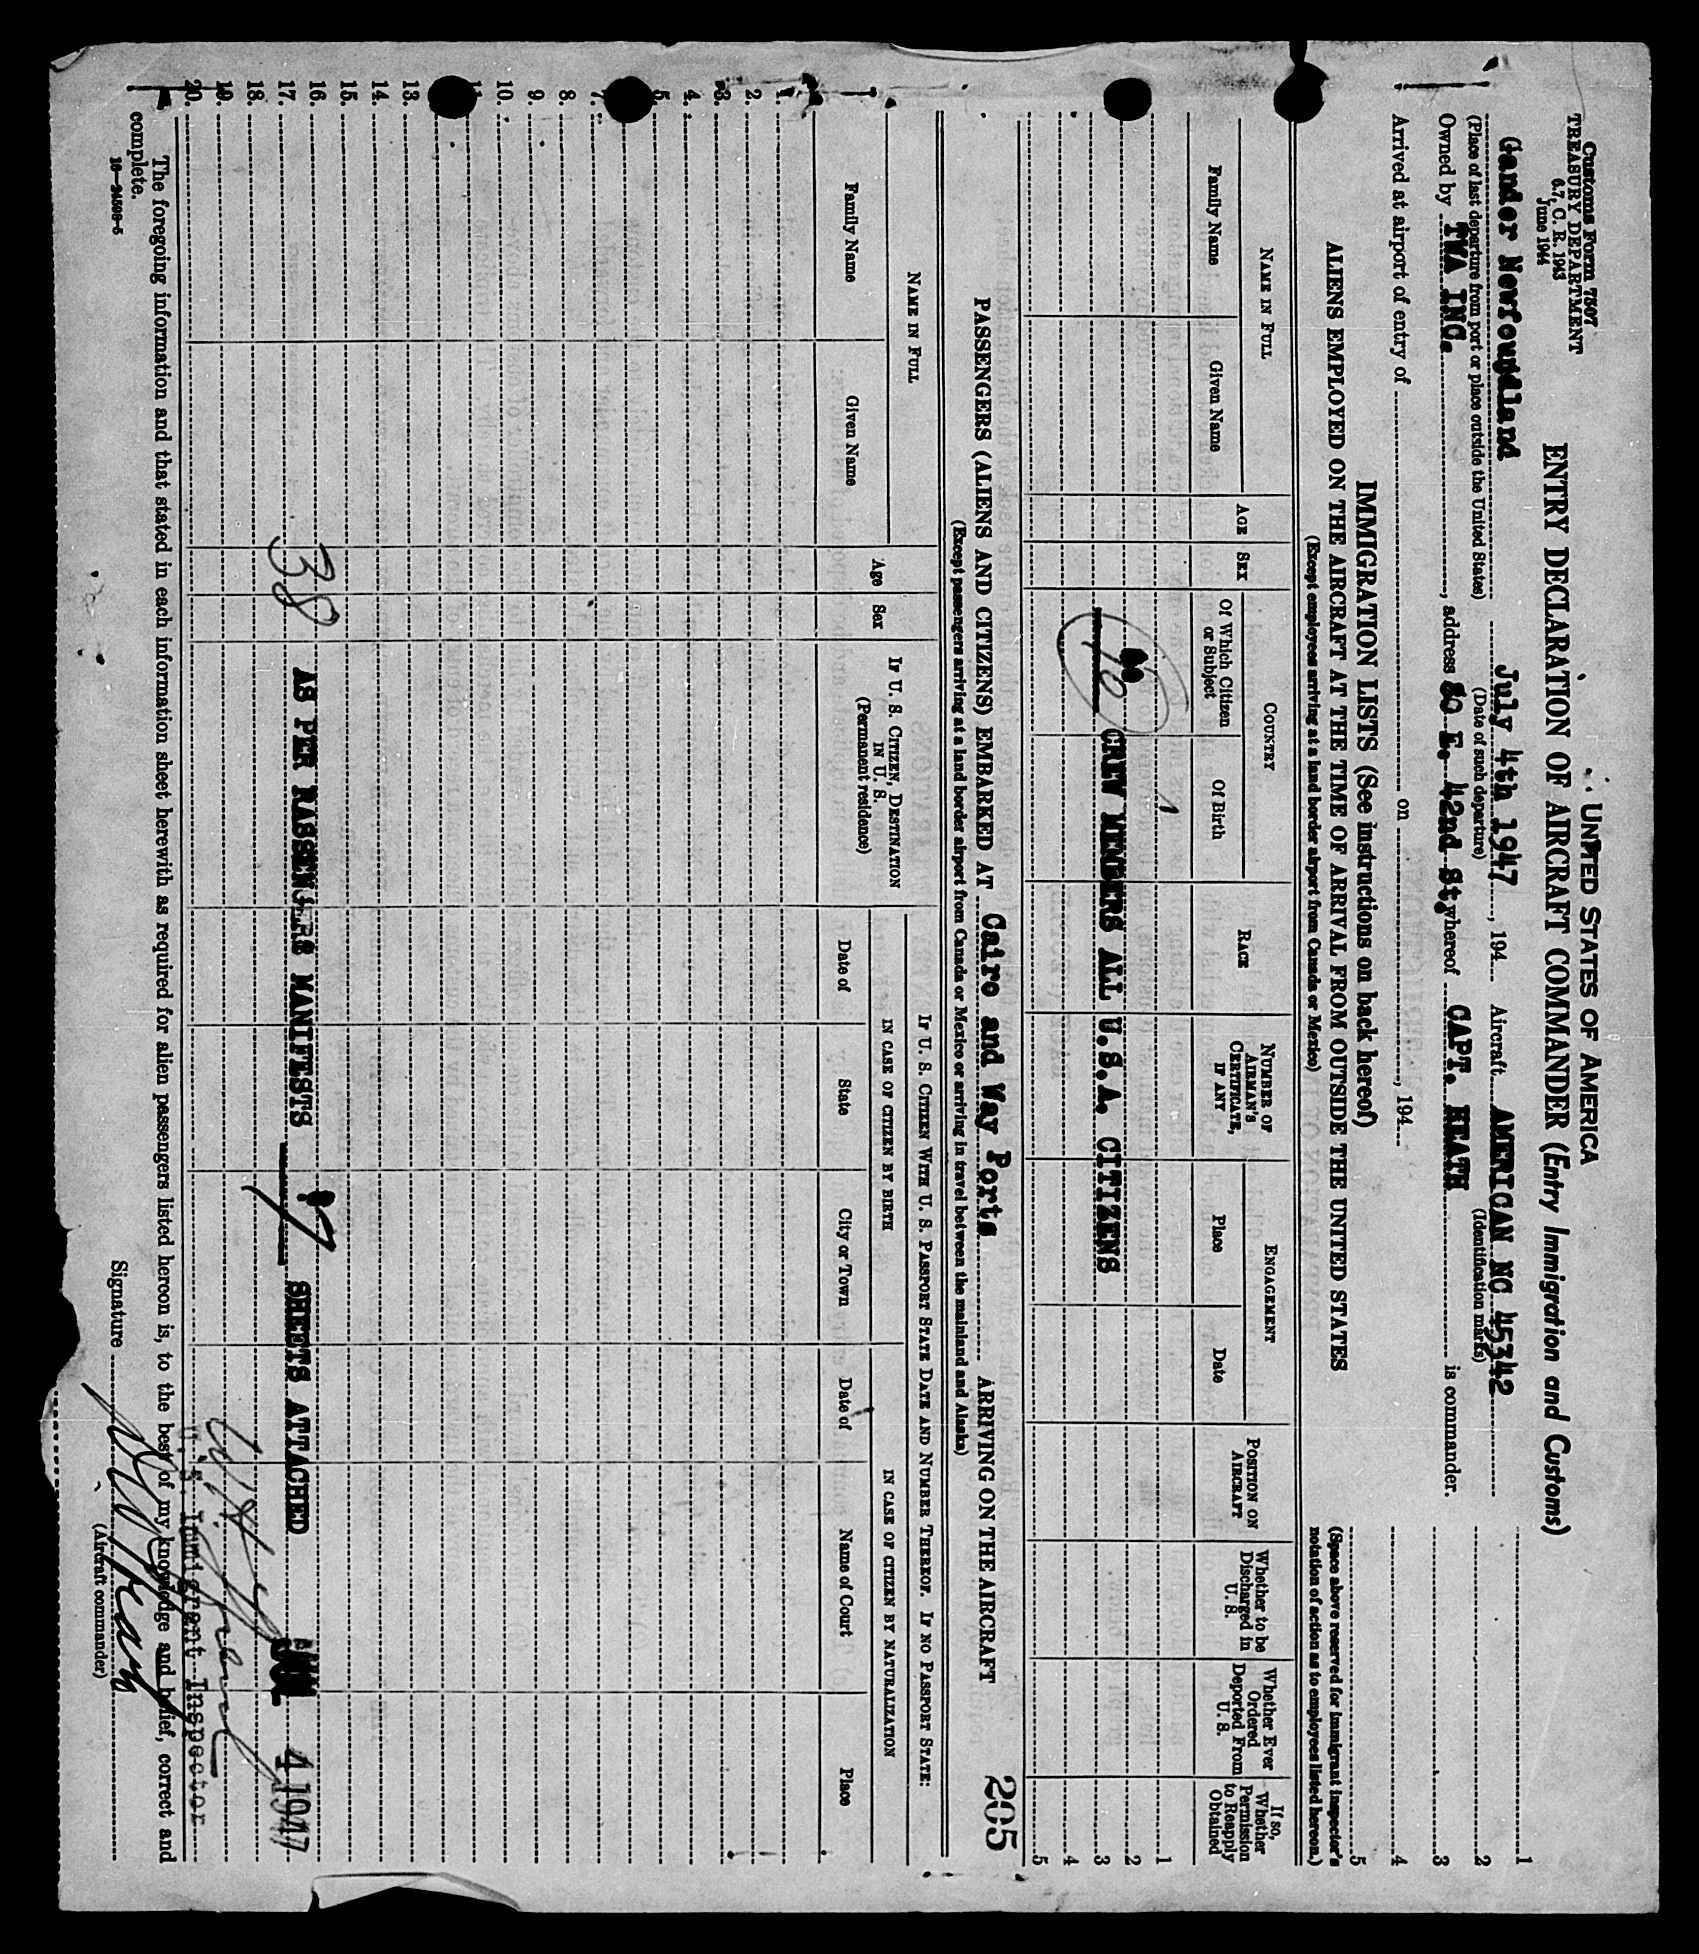 Customs Form 7507
TREASURY DEPARTMENT
6.7, C. R. 1943
June 1944
UNITED STATES OF AMERICA
ENTRY DECLARATION OF AIRCRAFT COMMANDER (Entry Immigration and Customs)
Gander Newfoundland July 4th 1947, 194 Aircraft AMERICAN NC 45342
(Place of last departure from port or place outside the United States) (Date of such departure) (Identification marks)
Owned by TWA INC., address 80 E. 42nd St, whereof CAPT. HEATH is commander.
Arrived at airport of entry of on , 194
1
2
3
4
5
(Space above reserved for immigrant inspector's notation of action as to employees listed hereon.)
IMMIGRATION LISTS (See instructions on back hereof)
ALIENS EMPLOYED ON THE AIRCRAFT AT THE TIME OF ARRIVAL FROM OUTSIDE THE UNITED STATES
(Except employees arriving at a land border airport from Canada or Mexico)
NAME IN FULL
Family Name Given Name
AGE SEX
COUNTRY
Of Which Citizen or Subject Of Birth
RACE
NUMBER OF AIRMAN'S CERTIFICATE, IF ANY
ENGAGEMENT
Place Date
POSITION ON AIRCRAFT
Whether to be Discharged in U. S.
Whether Ever Ordered Deported From U. S.
If so, Whether Permission to Reapply Obtained
1
2
10 CREW MEMBERS ALL U.S.A. CITIZENS 3
4
5
PASSENGERS (ALIENS AND CITIZENS) EMBARKED AT Cairo and Way Ports ARRIVING ON THE AIRCRAFT 205
(Except passengers arriving at a land border airport from Canada or Mexico or arriving in travel between the mainland and Alaska)
NAME IN FULL
Family Name Given Name
Age Sex
IF U. S. CITIZEN, DESTINATION IN U. S.
(Permanent residence)
IF U. S. CITIZEN WITH U. S. PASSPORT STATE DATE AND NUMBER THEREOF. IF NO PASSPORT STATE:
IN CASE OF CITIZEN BY BIRTH IN CASE OF CITIZEN BY NATURALIZATION
Date of State City or Town Date of Name of Court Place
1.
2.
3.
4.
5.
7.
8.
9.
10.
11.
13.
14.
15.
16.
17. 38 AS PER PASSENGERS MANIFESTS 7 SHEETS ATTACHED JUL 4 1947
18.
19.
20. U. S. Immigrant Inspector
The foregoing information and that stated in each information sheet herewith as required for alien passengers listed hereon is, to the best of my knowledge and belief, correct and
complete.
16—24598-5
Signature
(Aircraft commander)